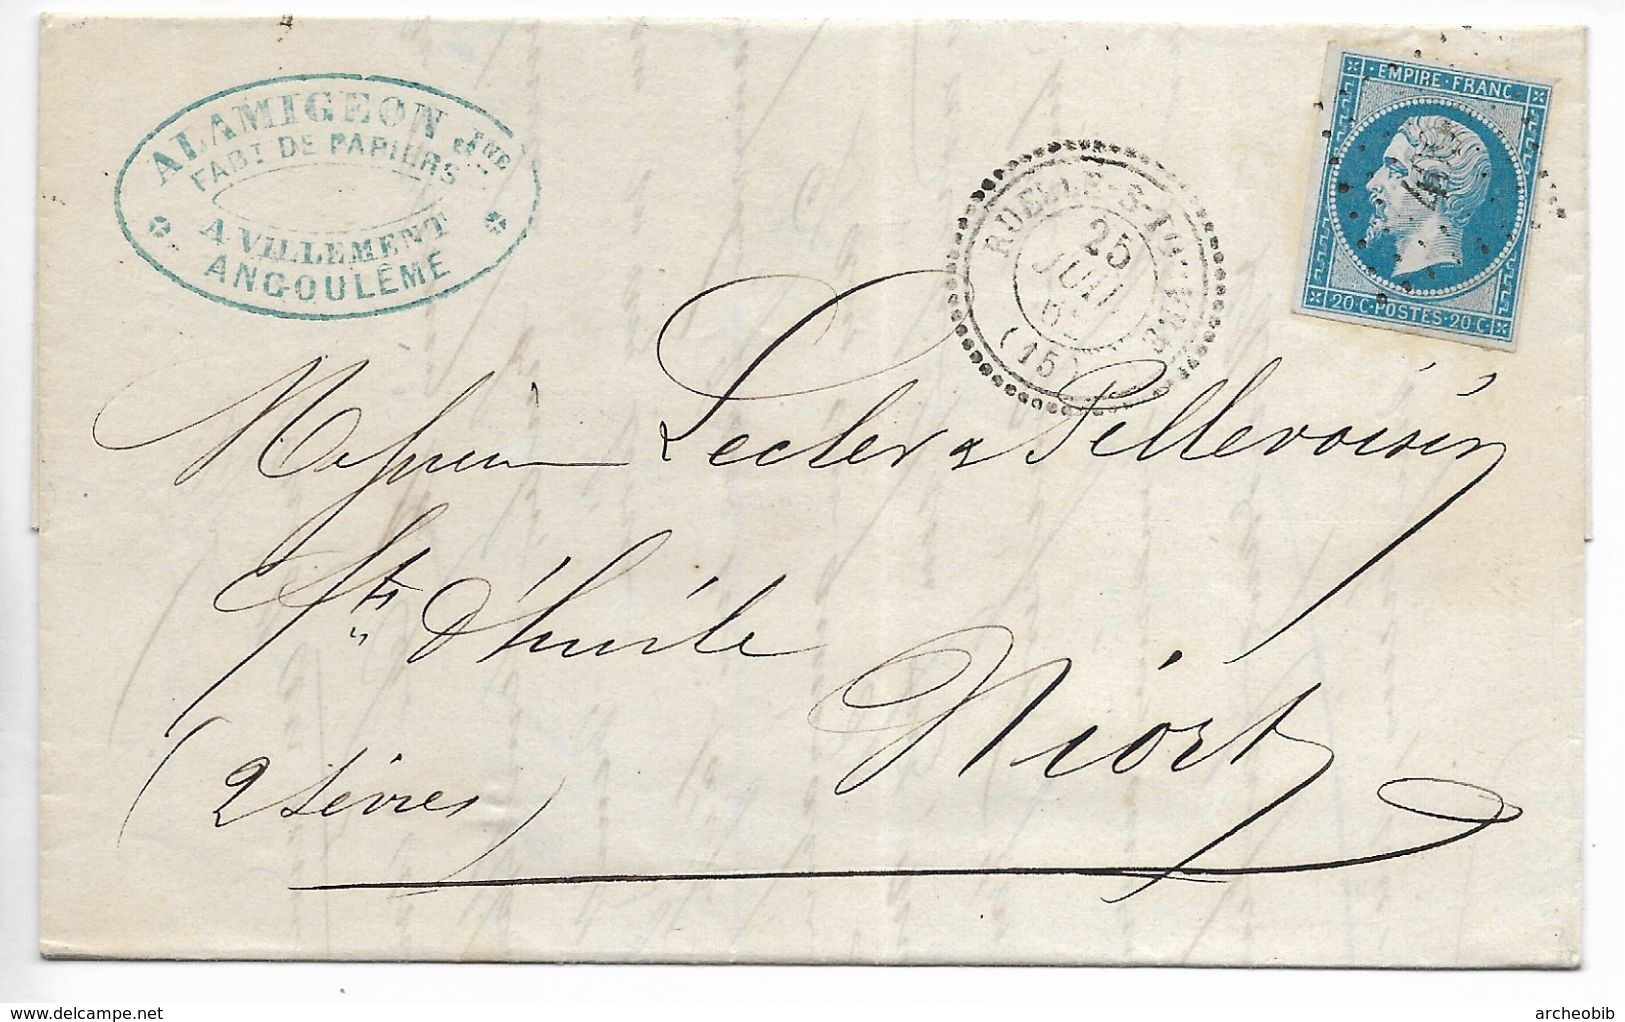 ALAMIGEON Jne
FABT DE PAPIERS
A VILLEMENT
ANGOULÊME
RUELLE-S-TOUVRE
25
JUIL
(15)
EMPIRE · FRANC
20 C · POSTES · 20 C
Messieurs Lecler & Pillevoisin
d'huile
Niort
(2 Sèvres)
delcampe.net
archeobib